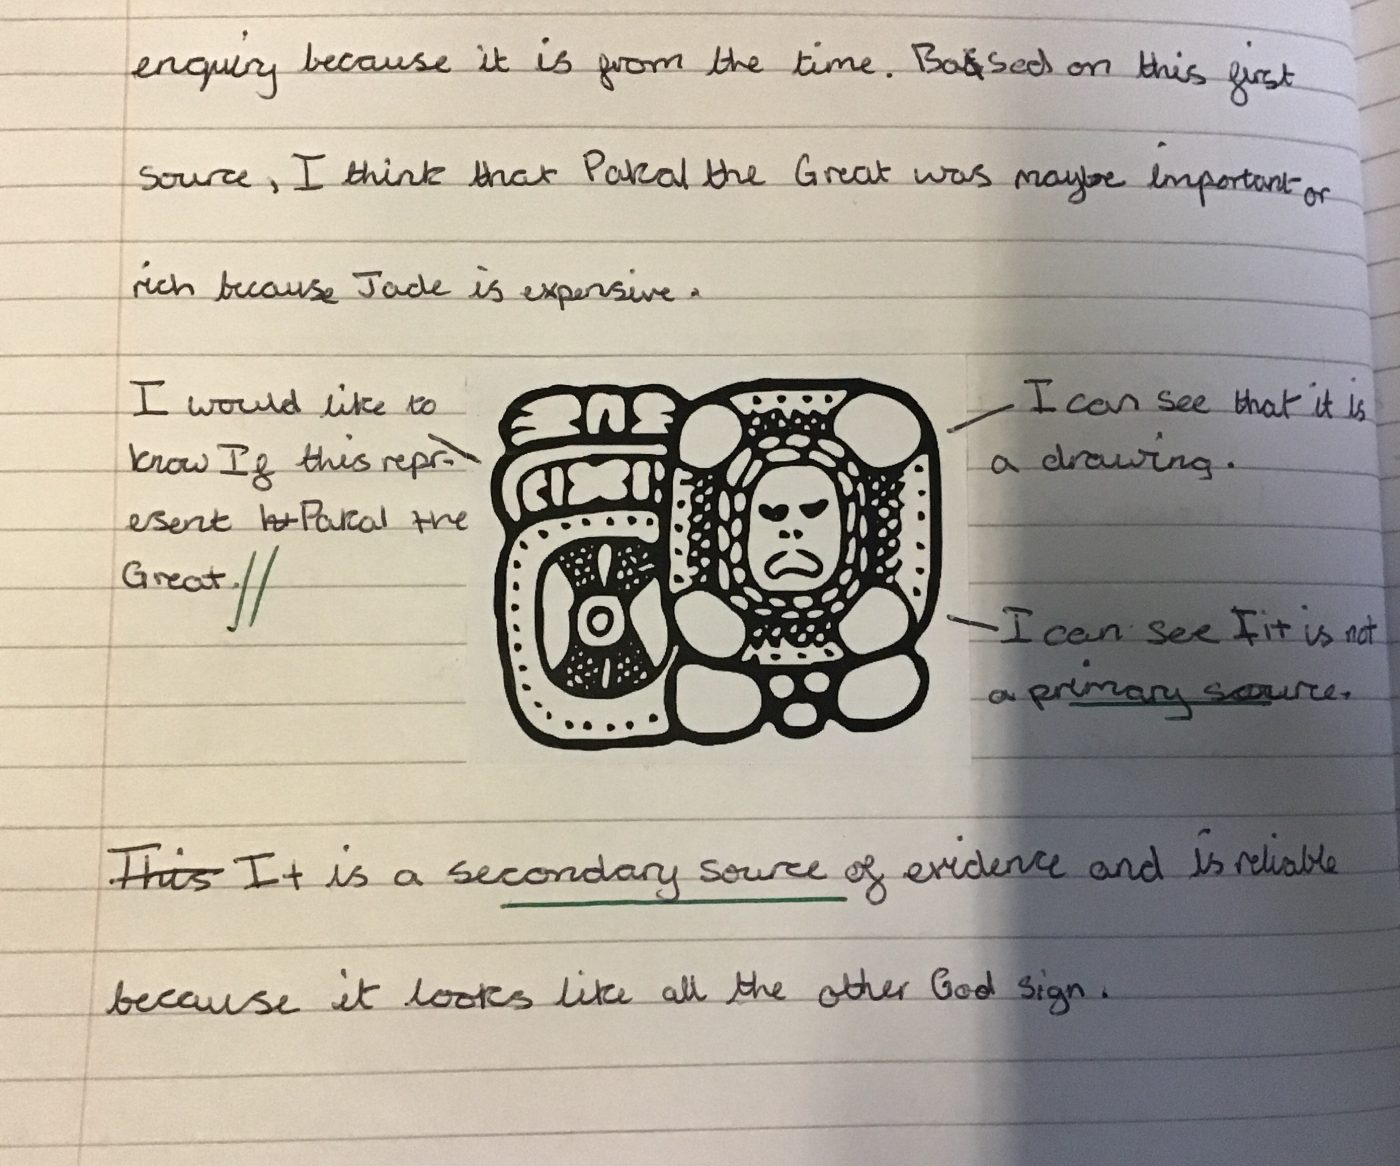 enquiry because it is from the time. Baased on this first
source, I think that Pakal the Great was maybe important or
rich because Jade is expensive.
I would like to
know If this repr-
esent Pakal the
Great.//
I can see that it is
a drawing.
I can see it is not
a primary source.
This It is a secondary source of evidence and is reliable
because it looks like all the other God sign.